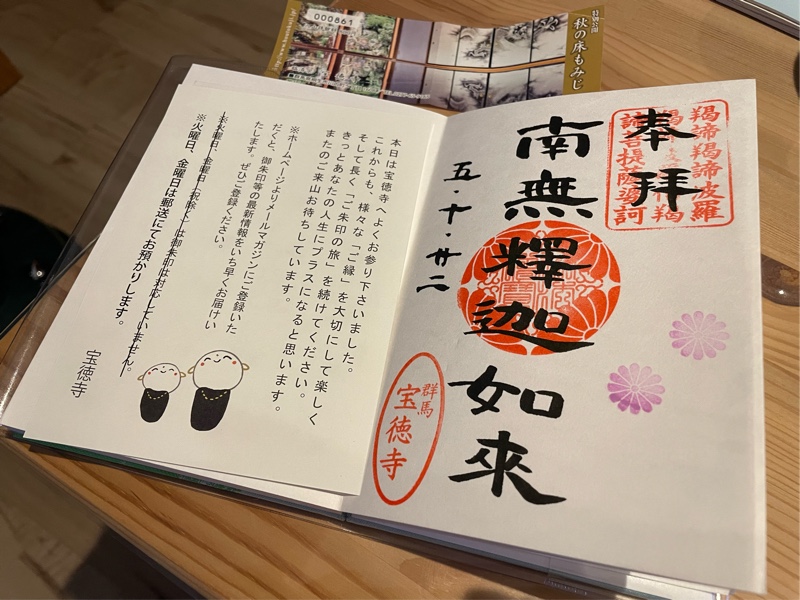 000861
特別公開
秋の床もみじ
奉拝
羯諦羯諦波羅
諦菩提薩婆訶
南無釋迦如來
五・十・廿二
群馬
宝徳寺
本日は宝徳寺へよくお参り下さいました。
これからも、様々な「ご縁」を大切にして楽しく
そして長く「ご朱印の旅」を続けてください。
きっとあなたの人生にプラスになると思います。
またのご来山お待ちしています。
※ホームページよりメールマガジンにご登録いた
だくと、御朱印等の最新情報をいち早くお届けい
たします。ぜひご登録ください。
※火曜日、金曜日（祝除く）は御朱印は対応していません。
※火曜日、金曜日は郵送にてお預かりします。
宝徳寺